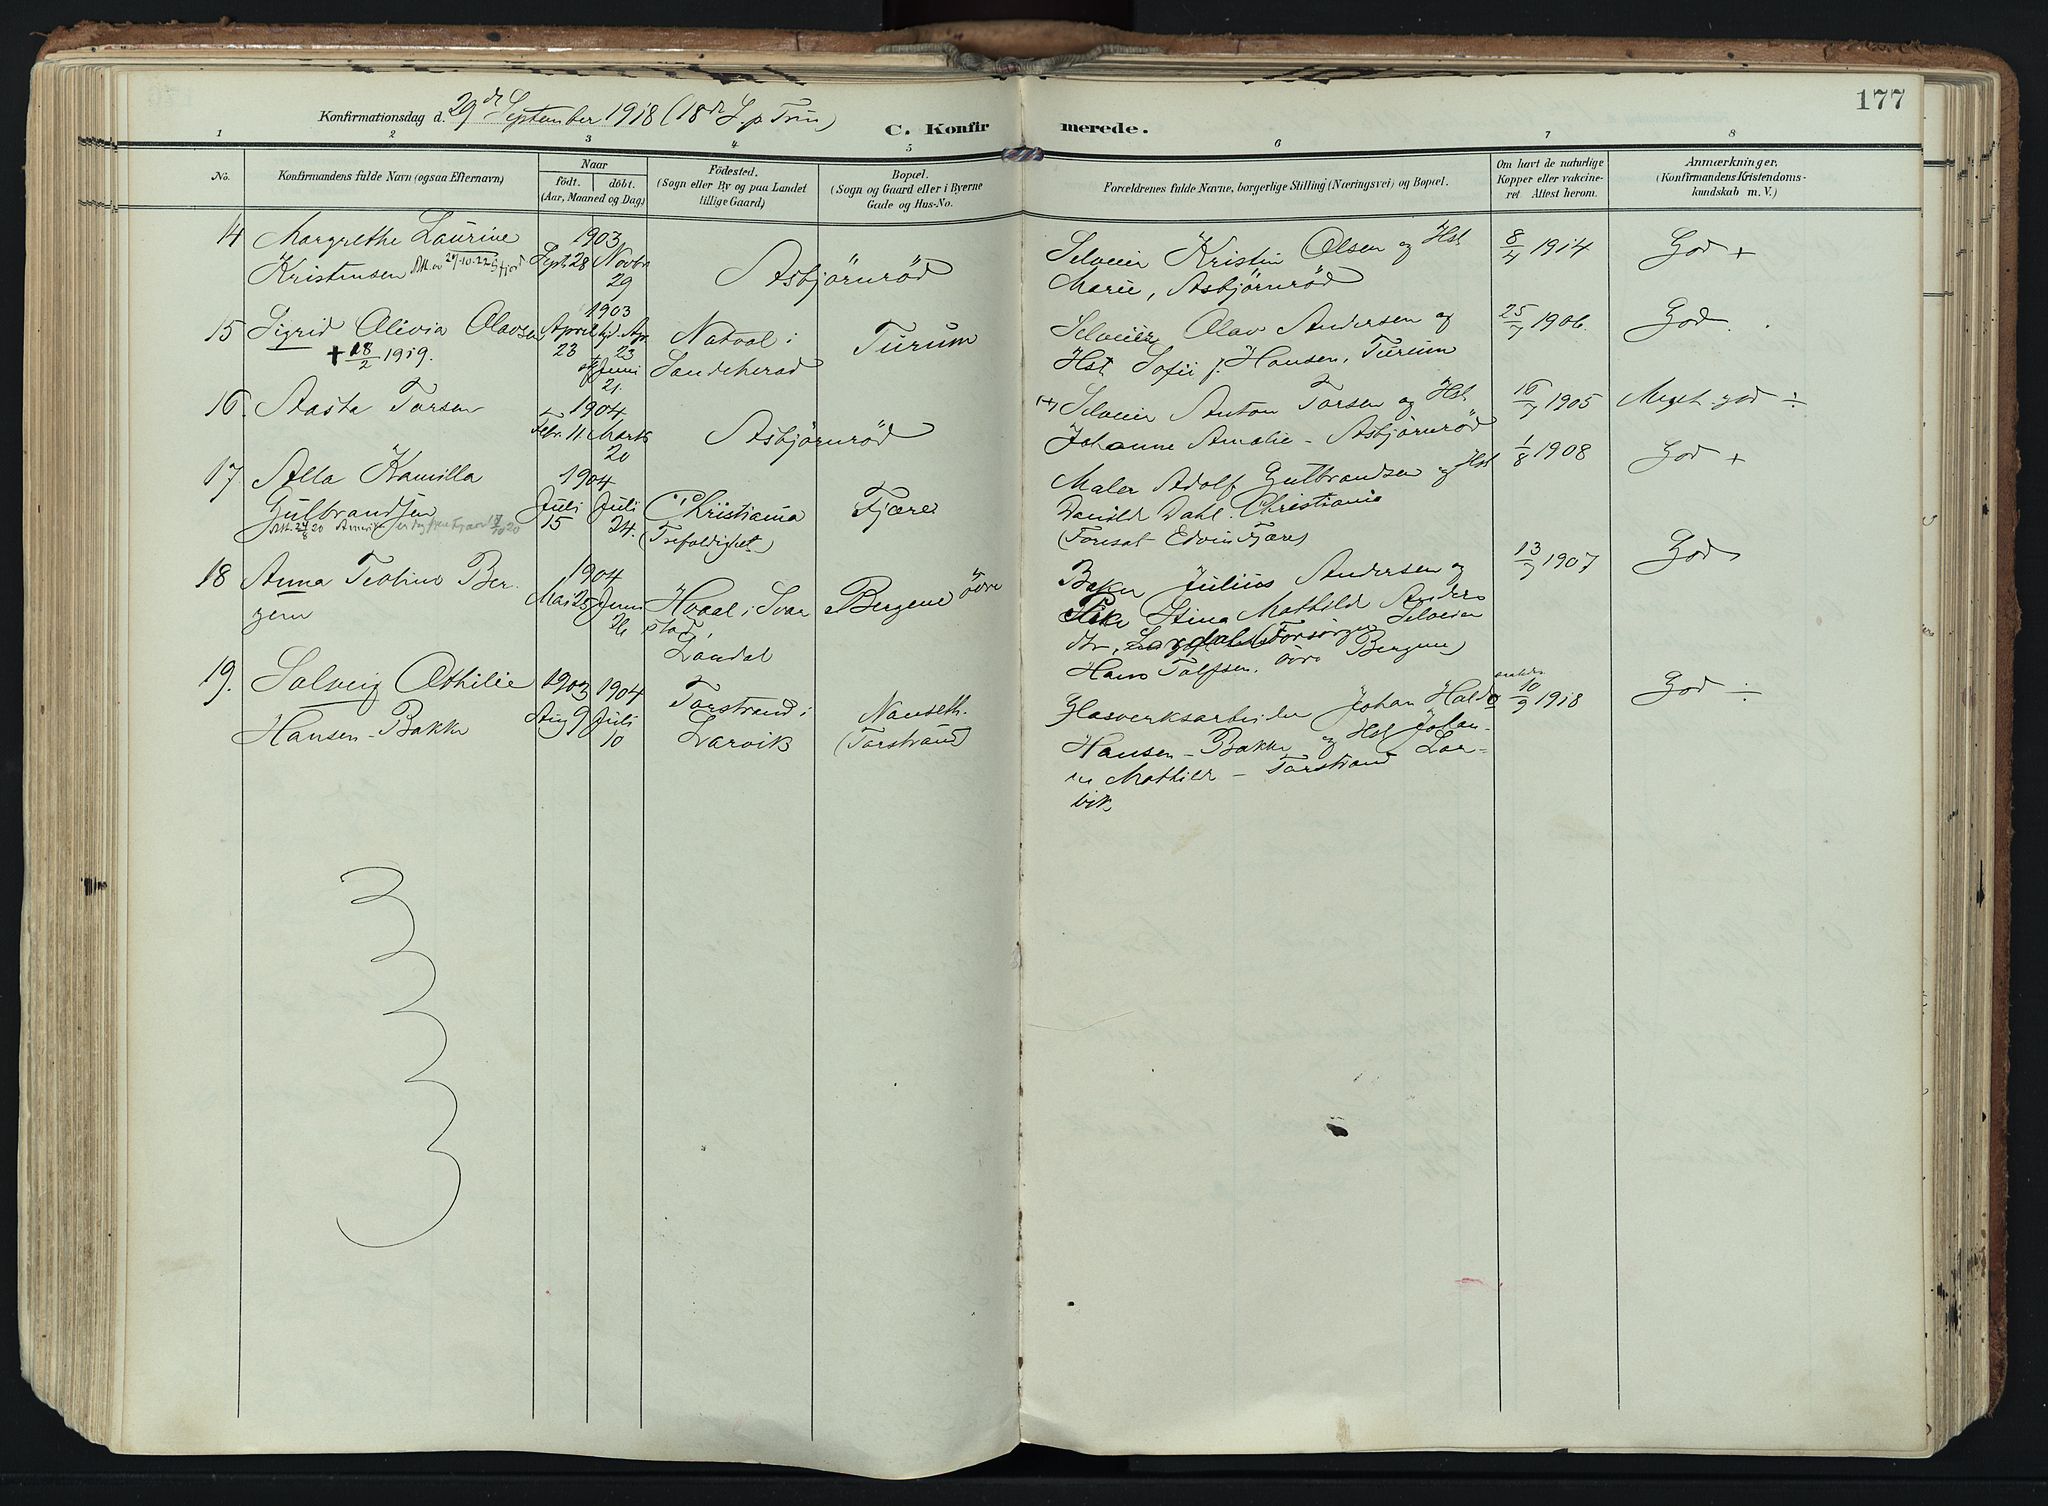 177
Konfirmationsdag d. 29de September 1918 (18de S. p. Trin)
C. Konfirmerede.
1 2 3 4 5 6 7 8
No.
Konfirmandens fulde Navn (ogsaa Efternavn)
Naar
födt. döbt.
(Aar, Maaned og Dag)
Födested.
(Sogn eller By og paa Landet
tillige Gaard)
Bopæl.
(Sogn og Gaard eller i Byerne
Gade og Hus-No.
Forældrenes fulde Navne, borgerlige Stilling (Næringsvei) og Bopæl.
Om havt de naturlige
Kopper eller vakcine-
ret Attest herom.
Anmærkninger,
(Konfirmandens Kristendoms-
kundskab m. V.)
14 Margrethe Laurine
Kristensen
1903
Septr 28 Novbr
29
Asbjörnröd
Selveier Kristin Olsen og Hst
Marie, Asbjörnröd
8/4 1914
God +
15 Sigrid Olivia Olavsen
+ 18/2 1919.
1903
April 23
23
Juni
21
Natvol i
Sandeherad
Turum
Selveier Olav Andersen og
Hst Sofie f. Hansen, Turum
25/7 1906.
God.
16 Aasta Torsen
1904
Febr. 11 Marts
20
Asbjörnröd
Selveier Anton Torsen og Hst
Johanne Amalie - Asbjörnröd
16/7 1905
Meget god ÷
17 Alla Kamilla
Gulbrandsen
1904
Juli Juli
15 24.
Christiania
(Trefoldighet)
Fjære
Maler Adolf Gulbrandsen og Hst
Dahl. Christiania
(Foresat Edvin Fjære)
1/8 1908
God +
18 Anna Teoline Ber-
gem
1904
Mai 25 Juni
26
Hvaal i Svar
stad,
Landal
Bergene övre
Baker Julius Andersen og
Pike Stina Mathilde Anders
dtr, (Forsörger Selveier
Hans Tolfsen. övre Bergene)
13/7 1907
God
19. Solveig Othilie
Hansen-Bakke
1903 1904
Aug 9 Juli
10
Torstrand i
Larvik
Nanseth.
(Torstrand)
Glasverksarbeider Johan Haldo
Hansen-Bakke og Hst Johan-
ne Mathilde - Torstrand Lar-
vik
10/9 1918
God ÷